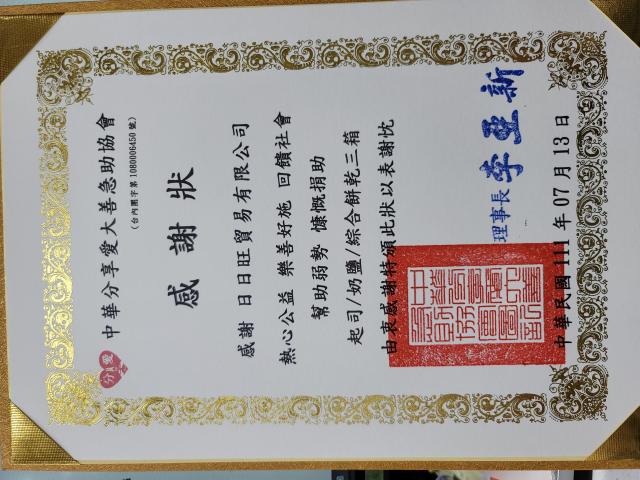 分享愛
中華分享愛大善急助協會
(台內團字第1080006450號)
感謝狀
感謝 日日旺貿易有限公司
熱心公益 樂善好施 回饋社會
幫助弱勢 慷慨捐助
起司/奶鹽/綜合餅乾三箱
由衷感謝特頒此狀以表謝忱
理事長 李亞新
中華民國111年07月13日